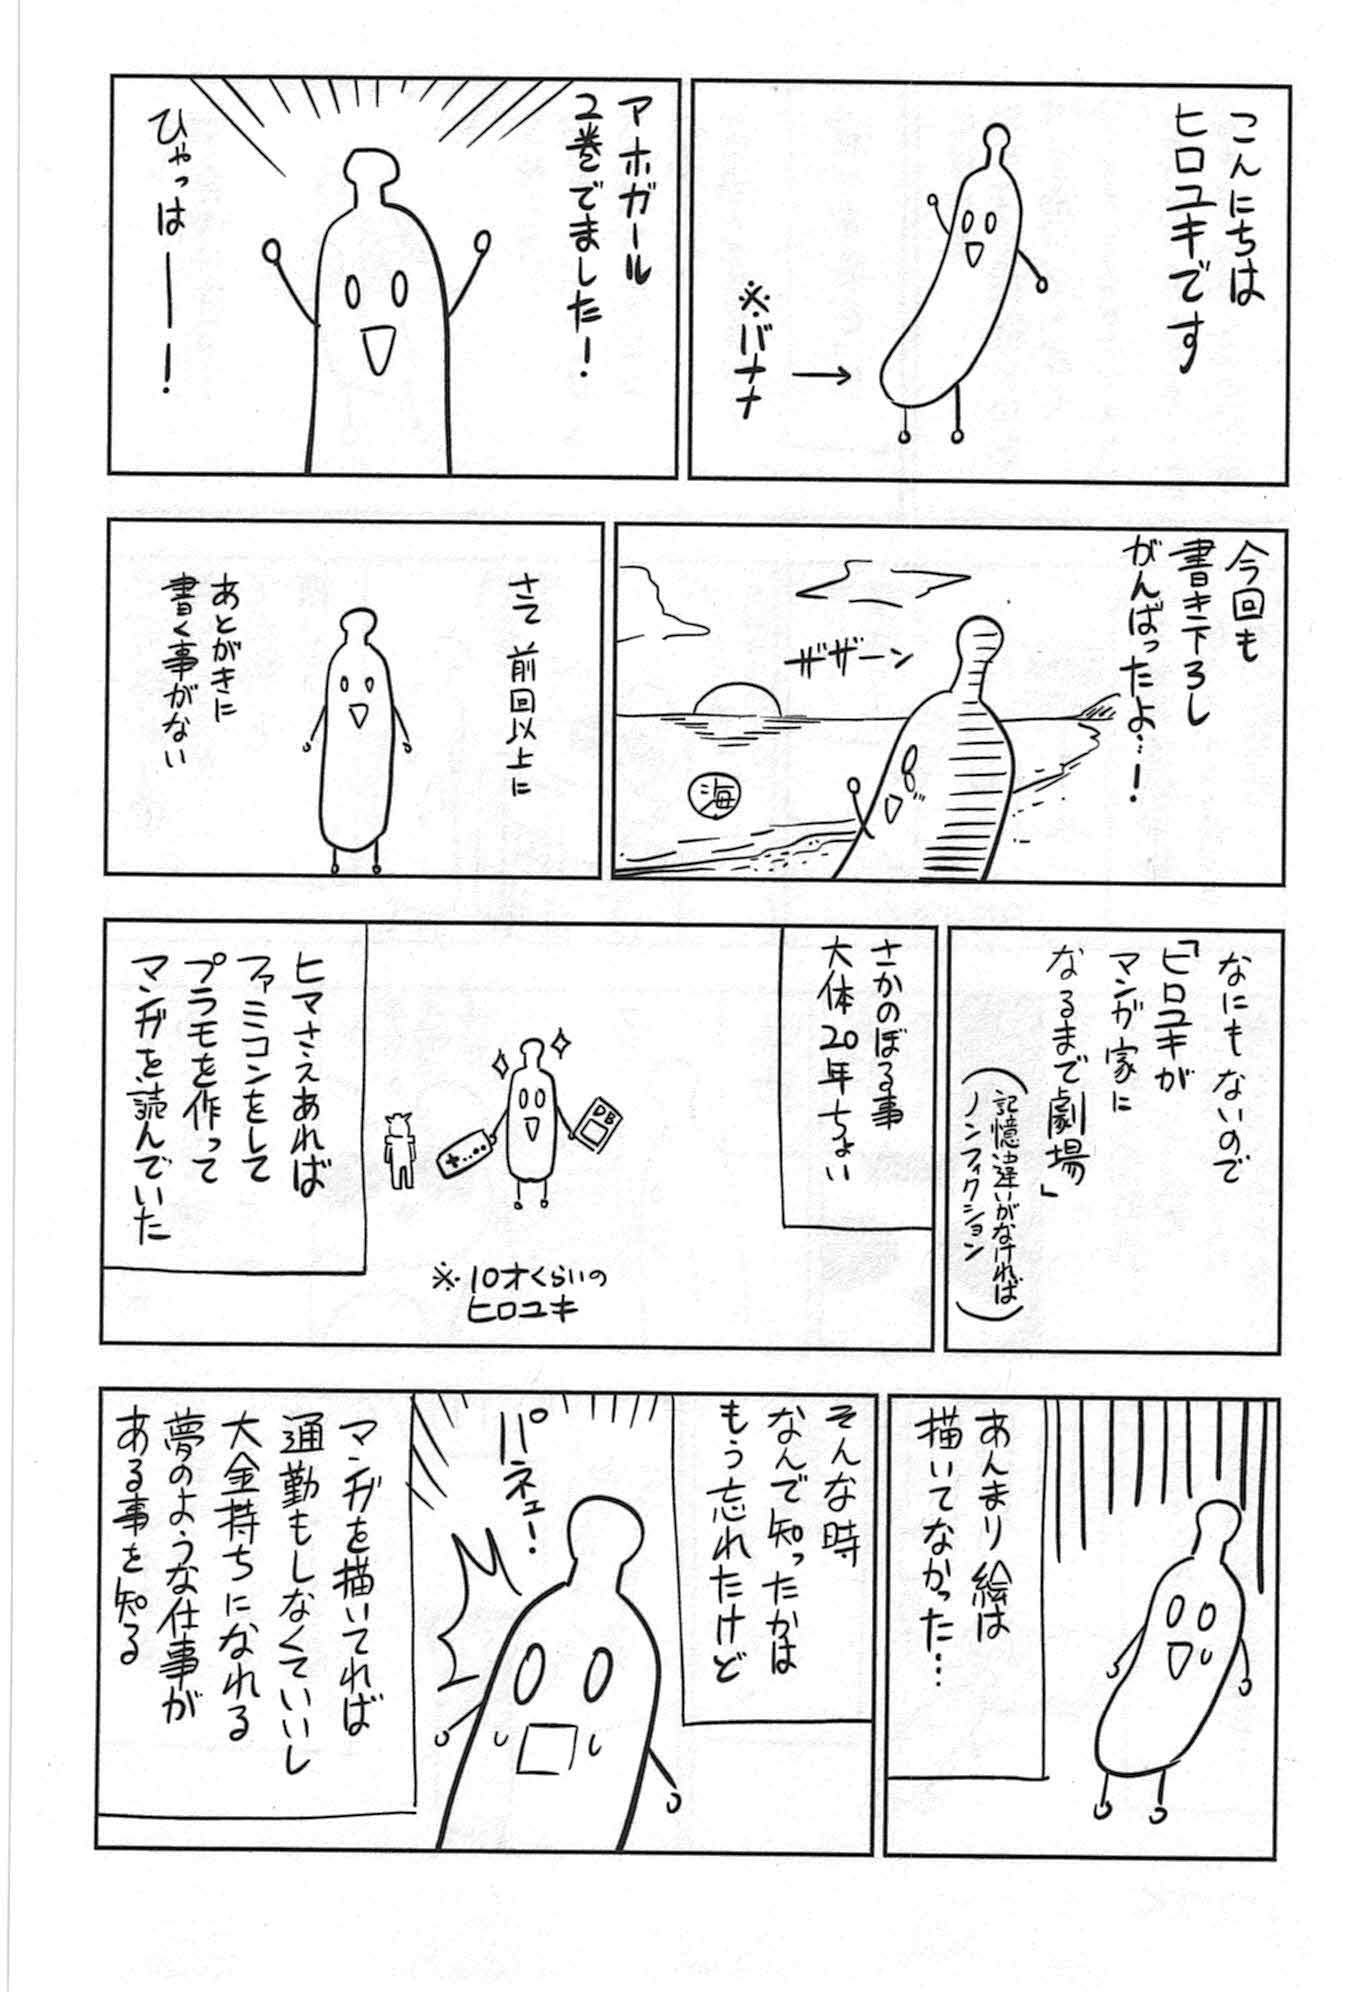 こんにちは
ヒロユキです
※バナナ
アホガール
2巻でました！
ひゃっはーー！
今回も
書き下ろし
がんばったよ…！
ザザーン
海
さて 前回以上に
あとがきに
書く事がない
なにもないので
「ヒロユキが
マンガ家に
なるまで劇場」
（記憶違いがなければ
ノンフィクション）
さかのぼる事
大体20年ちょい
DB
※10才くらいの
ヒロユキ
ヒマさえあれば
ファミコンをして
プラモを作って
マンガを読んでいた
あんまり絵は
描いてなかった…
そんな時
なんで知ったかは
もう忘れたけど
パネェ！
マンガを描いてれば
通勤もしなくていいし
大金持ちになれる
夢のような仕事が
ある事を知る